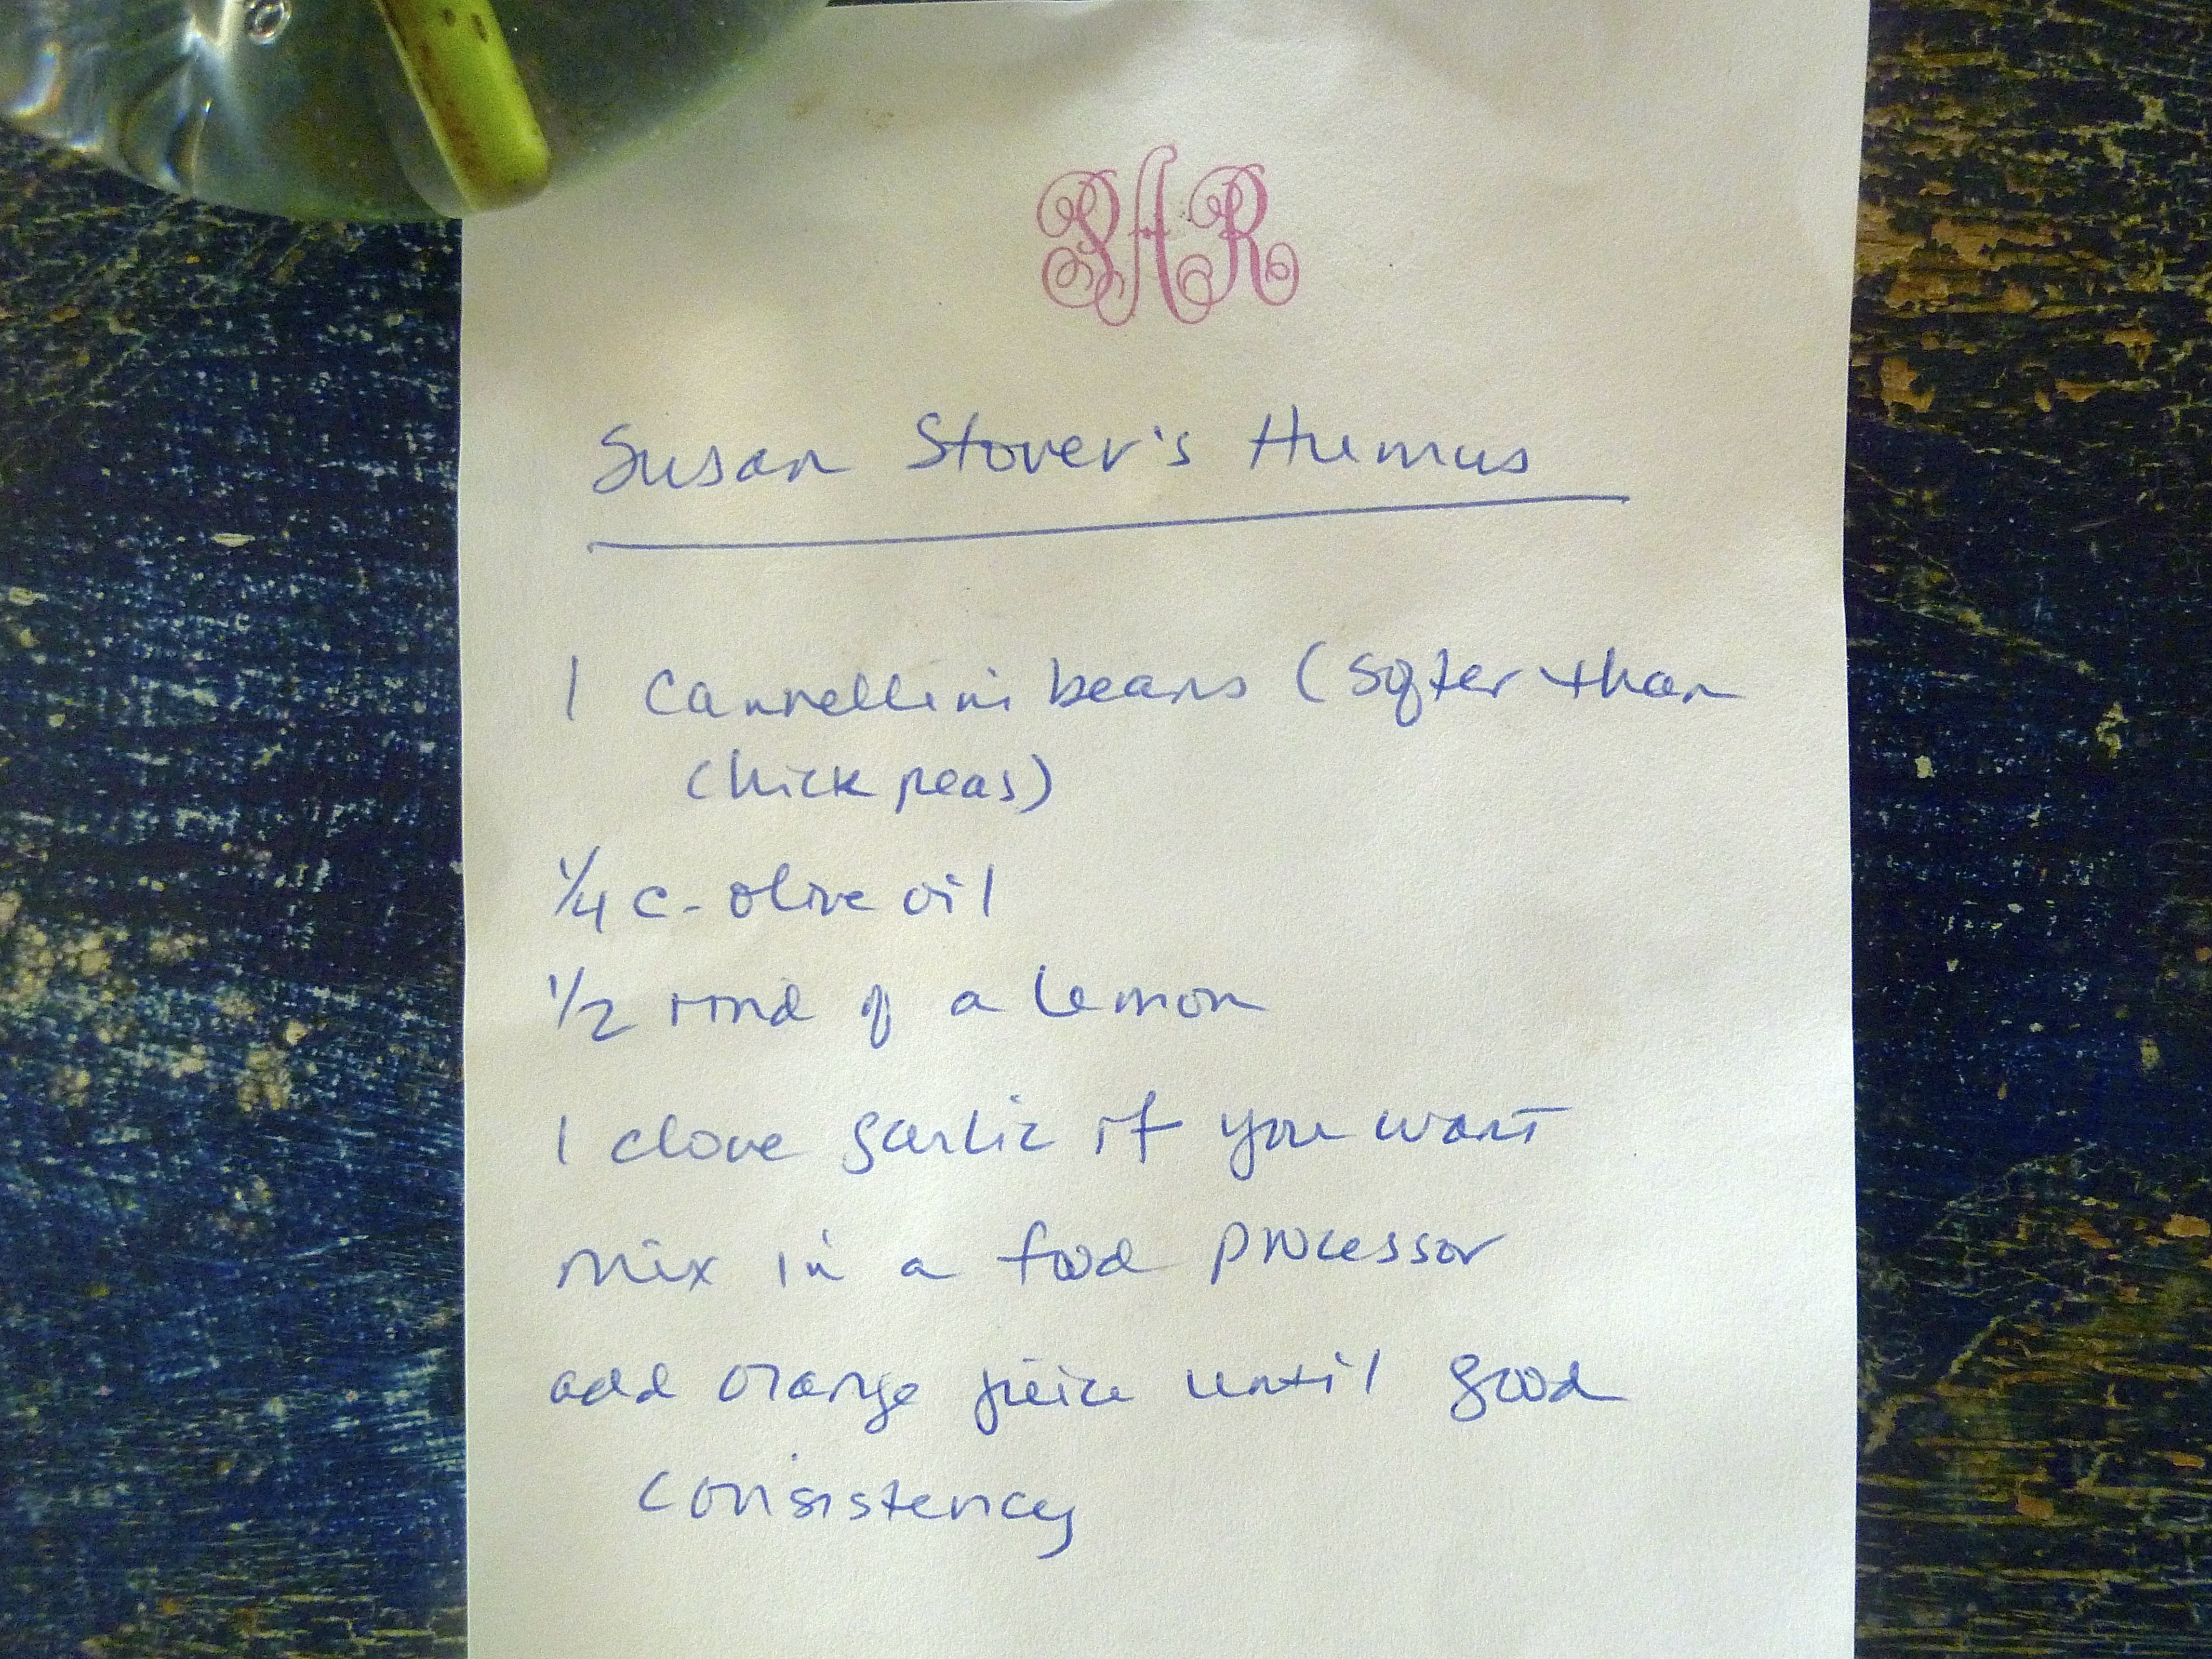 SAR
Susan Stover's Humus
1 Cannellini beans (softer than
chick peas)
1/4 c - olive oil
1/2 rind of a lemon
1 clove garlic if you want
mix in a food processor
add orange juice until good
consistency